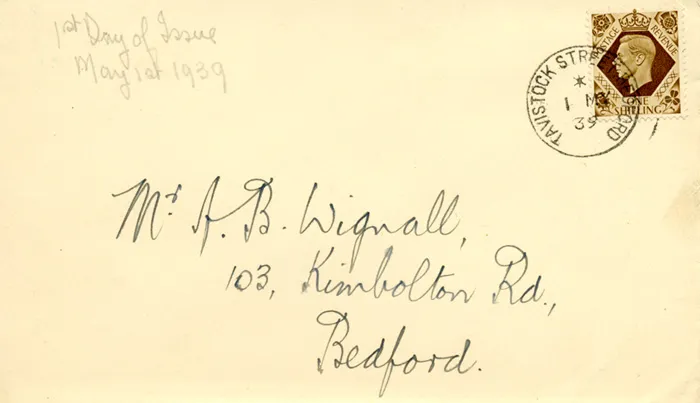 1st Day of Issue
May 1st 1939
POSTAGE REVENUE
ONE
SHILLING
TAVISTOCK STREET BEDFORD
1 MY
39
Mr A. B. Wignall,
103, Kimbolton Rd.,
Bedford.